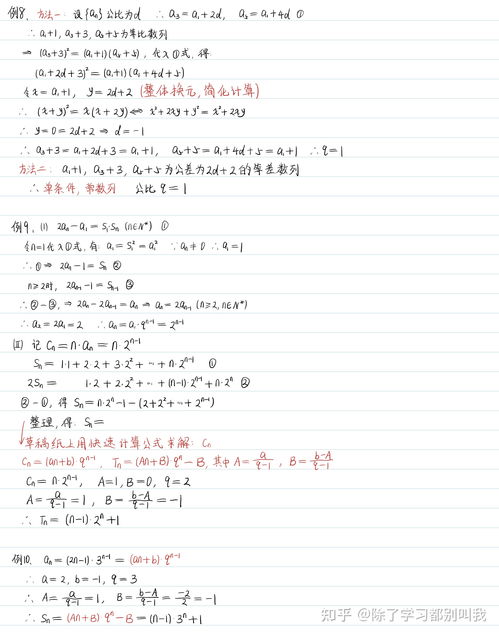 例8. 方法一: 设{aₙ}公比为d ∴ a₃=a₁+2d, a₅=a₁+4d ①
∴ a₁+1, a₃+3, a₅+5为等比数列
⇒ (a₃+3)²=(a₁+1)(a₅+5), 代入①式, 得:
(a₁+2d+3)²=(a₁+1)(a₁+4d+5)
令x=a₁+1, y=2d+2 (整体换元, 简化计算)
∴ (x+y)²=x(x+2y) ⇔ x²+2xy+y²=x²+2xy
∴ y=0=2d+2 ⇒ d=-1
∴ a₃+3=a₁+2d+3=a₁+1, a₅+5=a₁+4d+5=a₁+1 ∴ q=1
方法二: a₁+1, a₃+3, a₅+5为公差为2d+2的等差数列
∴ 单条件, 常数列 公比q=1
例9. (I) 2aₙ-a₁=S₁·Sₙ (n∈N*) ①
令n=1代入①式, 有: a₁=S₁²=a₁² ∵ aₙ≠0 ∴ a₁=1
∴ ① ⇒ 2aₙ-1=Sₙ ②
n≥2时, 2aₙ₋₁-1=Sₙ₋₁ ③
∴ ②-③, ⇒ 2aₙ-2aₙ₋₁=aₙ ⇒ aₙ=2aₙ₋₁ (n≥2, n∈N*)
∴ a₂=2a₁=2 ∴ aₙ=a₁·qⁿ⁻¹=2ⁿ⁻¹
(II) 记Cₙ=n·aₙ=n·2ⁿ⁻¹
Sₙ=1·1+2·2+3·2²+…+n·2ⁿ⁻¹ ①
2Sₙ= 1·2+2·2²+…+(n-1)·2ⁿ⁻¹+n·2ⁿ ②
②-①, 得Sₙ=n·2ⁿ-1-(2+2²+…+2ⁿ⁻¹)
整理, 得: Sₙ=
草稿纸上用快速计算公式求解: Cₙ
Cₙ=(an+b)·qⁿ⁻¹, Tₙ=(An+B)·qⁿ-B, 其中A=a/(q-1), B=(b-A)/(q-1)
Cₙ=n·2ⁿ⁻¹, A=1, B=0, q=2
A=a/(q-1)=1, B=(b-A)/(q-1)=-1
∴ Tₙ=(n-1)·2ⁿ+1
例10. aₙ=(2n-1)·3ⁿ⁻¹=(an+b)·qⁿ⁻¹
∴ a=2, b=-1, q=3
∴ A=a/(q-1)=1, B=(b-A)/(q-1)=-2/2=-1
∴ Sₙ=(An+B)qⁿ-B=(n-1)·3ⁿ+1
知乎 @除了学习都别叫我